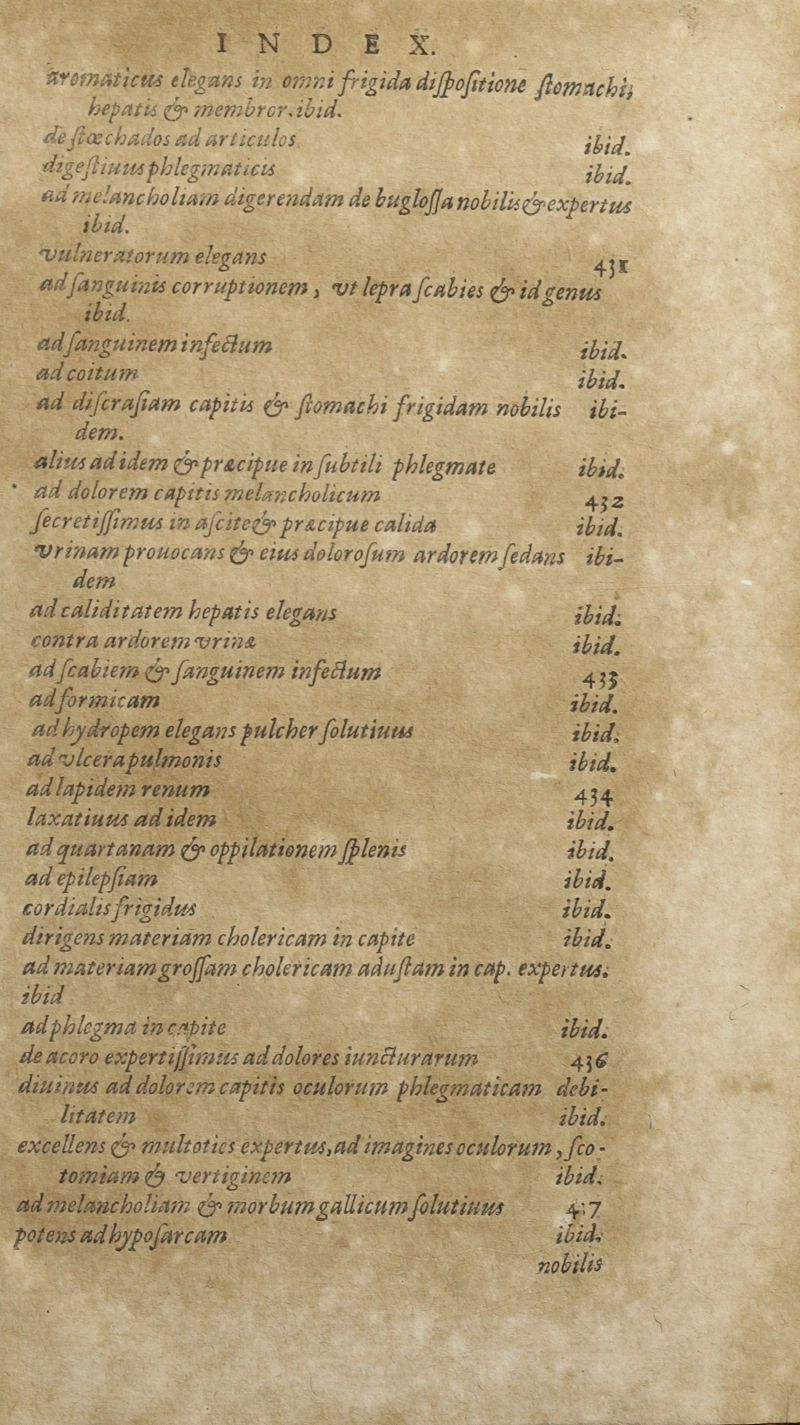 INDEX.
aromaticus elegans in omni frigida dißpoſitione ſtomachi,
hepatis & membror. ibid.
de ſtœchados ad articulos ibid.
digeſtiuus phlegmaticis ibid.
ad melancholiam digerendam de bugloſſa nobilis & expertus
ibid.
vulneratorum elegans 431
ad ſanguinis corruptionem, vt lepra ſcabies & id genus
ibid.
ad ſanguinem infectum ibid.
ad coitum ibid.
ad diſcraſiam capitis & ſtomachi frigidam nobilis ibi-
dem.
alius ad idem & præcipue in ſubtili phlegmate ibid.
ad dolorem capitis melancholicum 432
ſecretiſſimus in aſcite & præcipue calida ibid.
vrinam prouocans & eius doloroſum ardorem ſedans ibi-
dem
ad caliditatem hepatis elegans ibid.
contra ardorem vrinæ ibid.
ad ſcabiem & ſanguinem infectum 433
ad formicam ibid.
ad hydropem elegans pulcher ſolutiuus ibid.
ad vlcera pulmonis ibid.
ad lapidem renum 434
laxatiuus ad idem ibid.
ad quartanam & oppilationem ſplenis ibid.
ad epilepſiam ibid.
cordialis frigidus ibid.
dirigens materiam cholericam in capite ibid.
ad materiam groſſam cholericam aduſtam in cap. expertus.
ibid
ad phlegma in capite ibid.
de acoro expertiſſimus ad dolores iuncturarum 436
diuinus ad dolorem capitis oculorum phlegmaticam debi-
litatem ibid.
excellens & multoties expertus, ad imagines oculorum, ſco-
tomiam & vertiginem ibid.
ad melancholiam & morbum gallicum ſolutiuus 437
potens ad hypoſarcam ibid.
nobilis